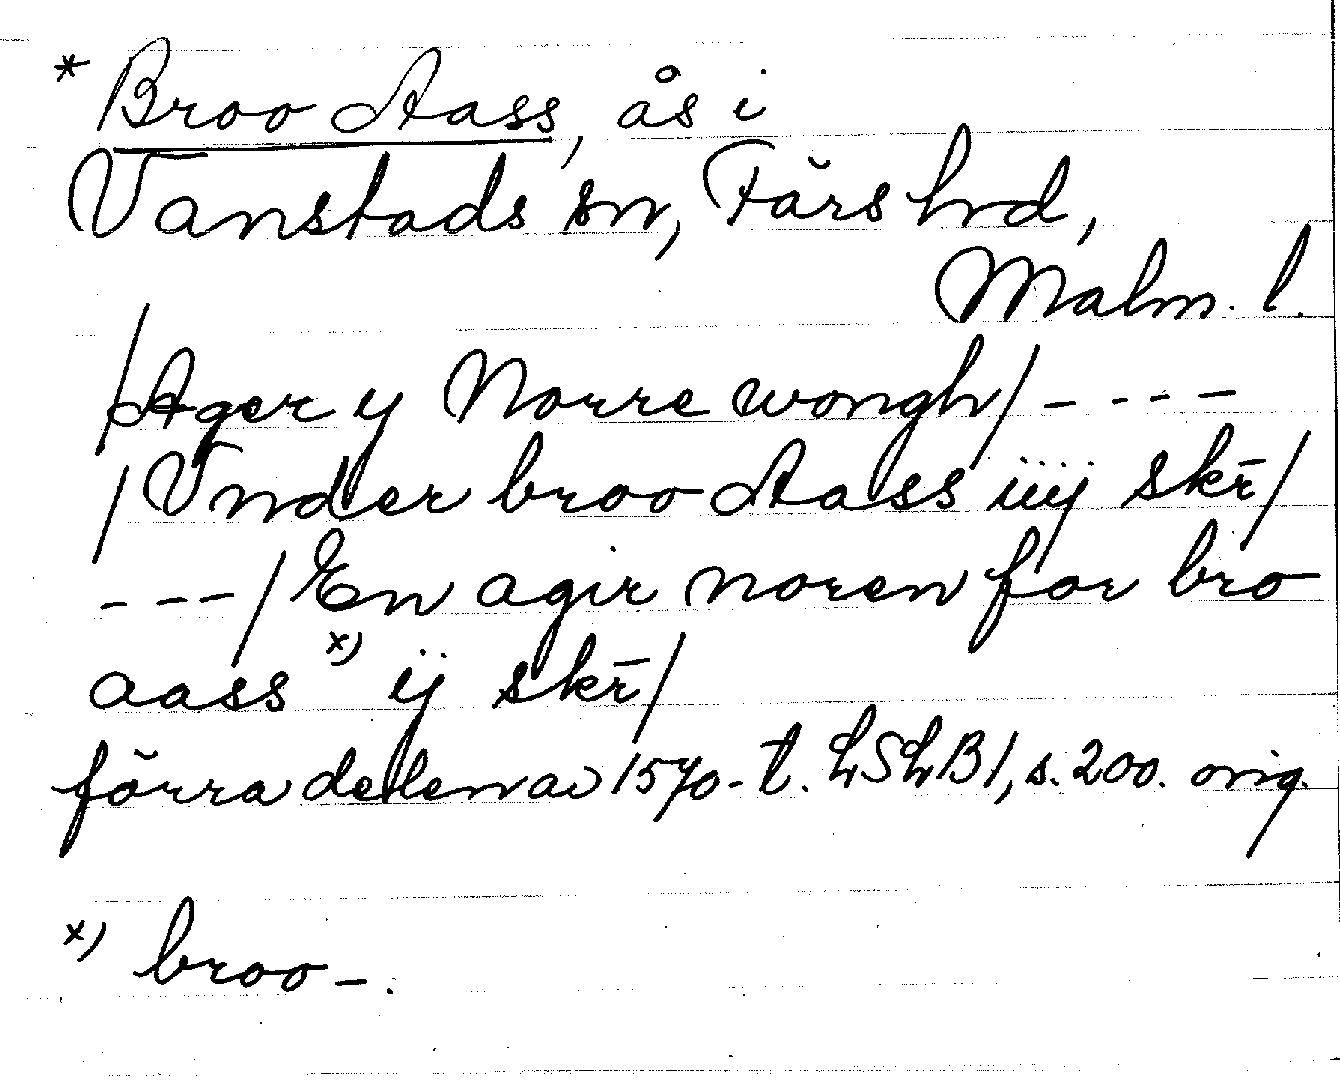 * Broo Aass, ås i
Vanstads sn, Färs hrd,
Malm. l.
/Ager y Norre wongh/ - - - -
/Vnder broo Aass iiij skr̄/
- - - /En agir noren for bro
aass x) ij skr̄/
förra delen av 1570-t. LSLB I, s. 200. orig.
x) broo-.